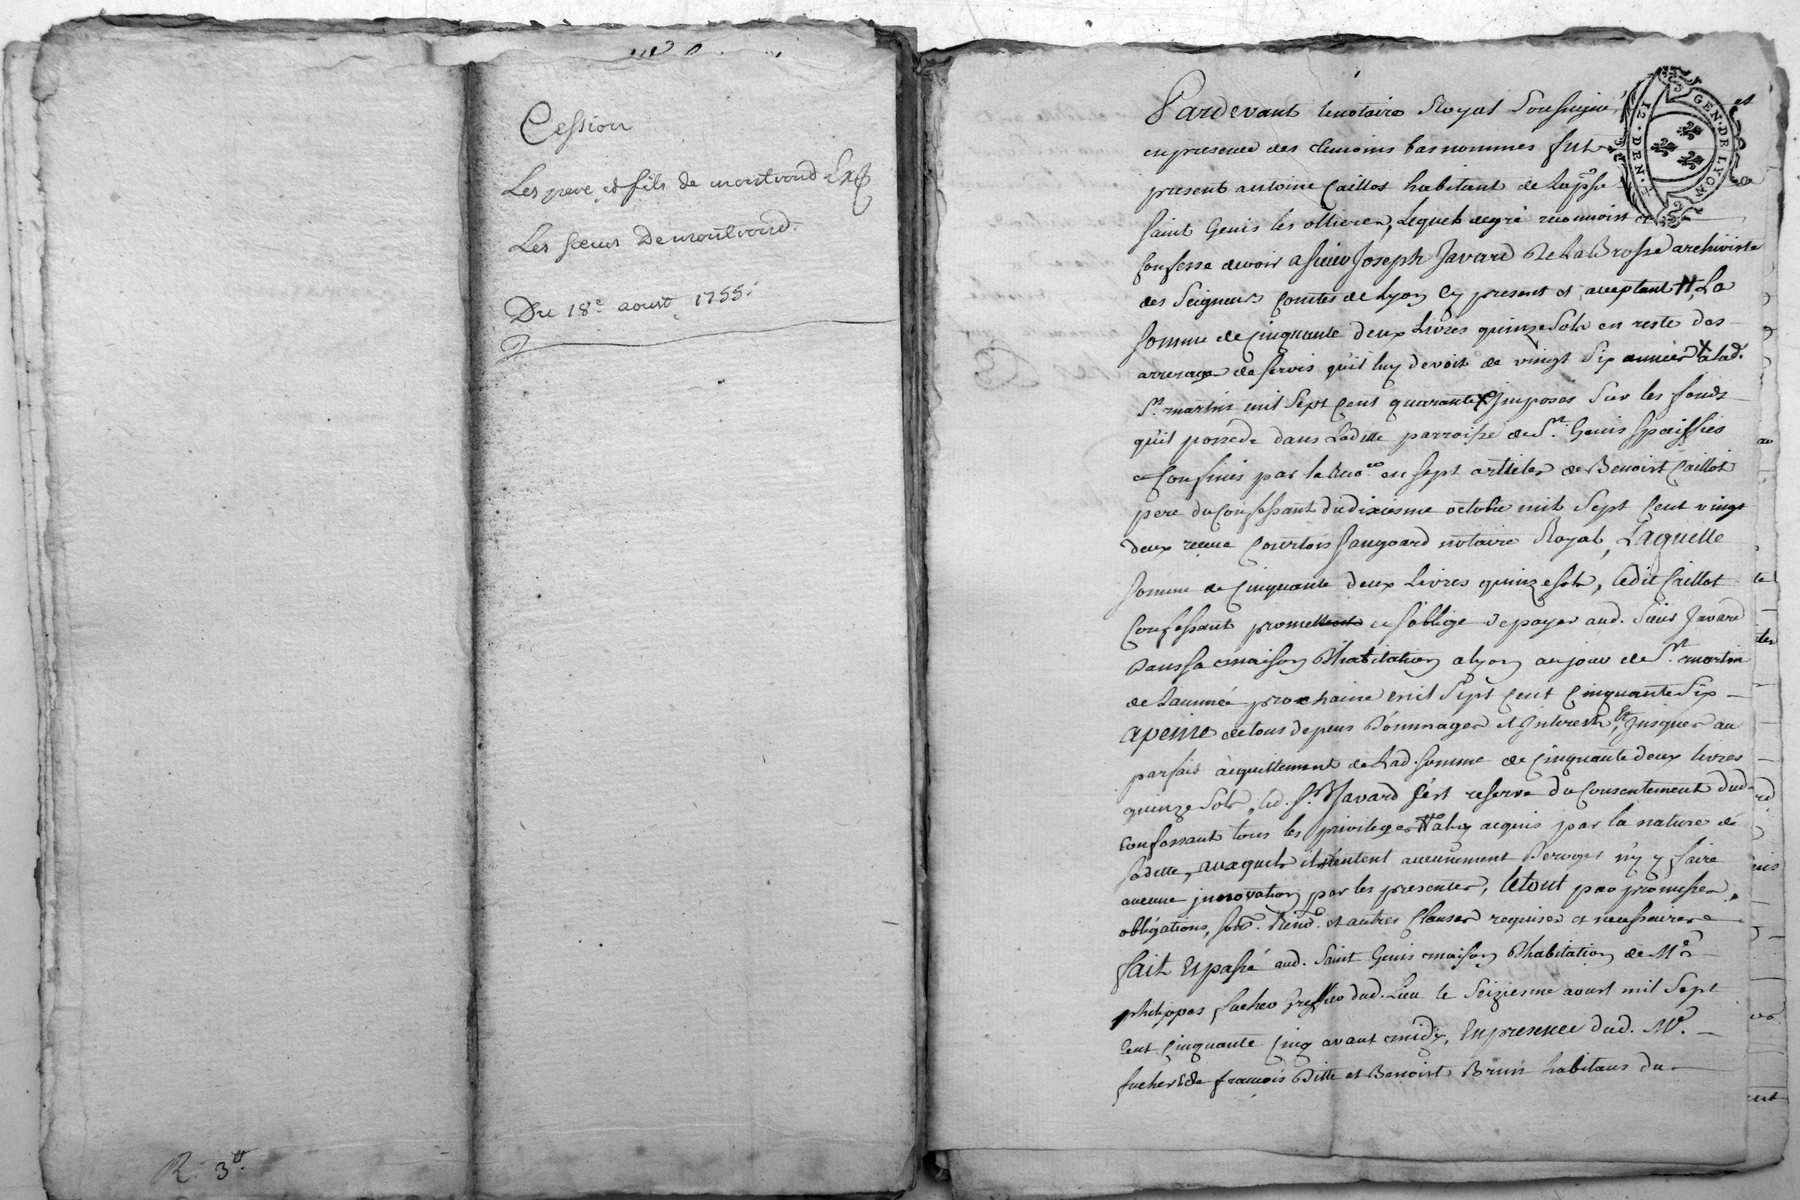 Cession
Les pere et fils de montrond
Les sœurs Demontrond.
Du 18e. aoust 1755.
R. 3tt
GEN. DE LYON
12. DEN.
Pardevant lenotaire Royal Soussigné et
enpresence des temoins basnommés fut
present antoine Caillot habitant de lapsse
saint Genis les ollieres, lequel degré reconnoist et
Confesse devoir a sieur Joseph Javard DeLaBrosse archiviste
des Seigneurs Comtes de Lyon Cy present et aceptant # La
somme de Cinquante deux Livres quinze Sols en reste des
arrerages de servis quil luy devoit de vingt Six années a lad.
St. martin mil Sept Cent quarante Imposés Sur les fonds
quil possede dans Laditte parroisse de St. Genis Speiffiés
et Confinés par la Reco.on en sept articles de Benoist Caillot
pere du Confessant du dixiesme octobre mil Sept Cent vingt
deux reçue Courtois Jangoard notaire Royal, Laquelle
somme de Cinquante deux Livres quinze sols, ledit Caillot
Confessant promet et soblige depayer aud. Sieur Javard
Dans sa maison D'habitation a lyon au jour de St. martin
de Lannée prochaine mil Sept Cent Cinquante Six
apeine de tous depens Dommages et Interests, et Jusques au
parfait acquittement de Lad. somme de Cinquante deux livres
quinze Sols, led. Sr. Javard s'est reservé du Consentement dud.
Confessant tous les privileges # a luy acquis par la nature de
sa dette, auxquels il n'entent aucunement Deroger n'y y faire
aucune innovation par les presentes, letout par promesses,
obligations, Renon. et autres Clauses requises et necessaires
fait Et passé aud. Saint Genis maison D'habitation de Me.
philippes fucher Greffier dud. Lieu le Seiziesme aoust mil Sept
Cent Cinquante Cinq avant midy, Enpresence dud. Me.
fucher & de françois Ditte et Benoist Brun habitans du